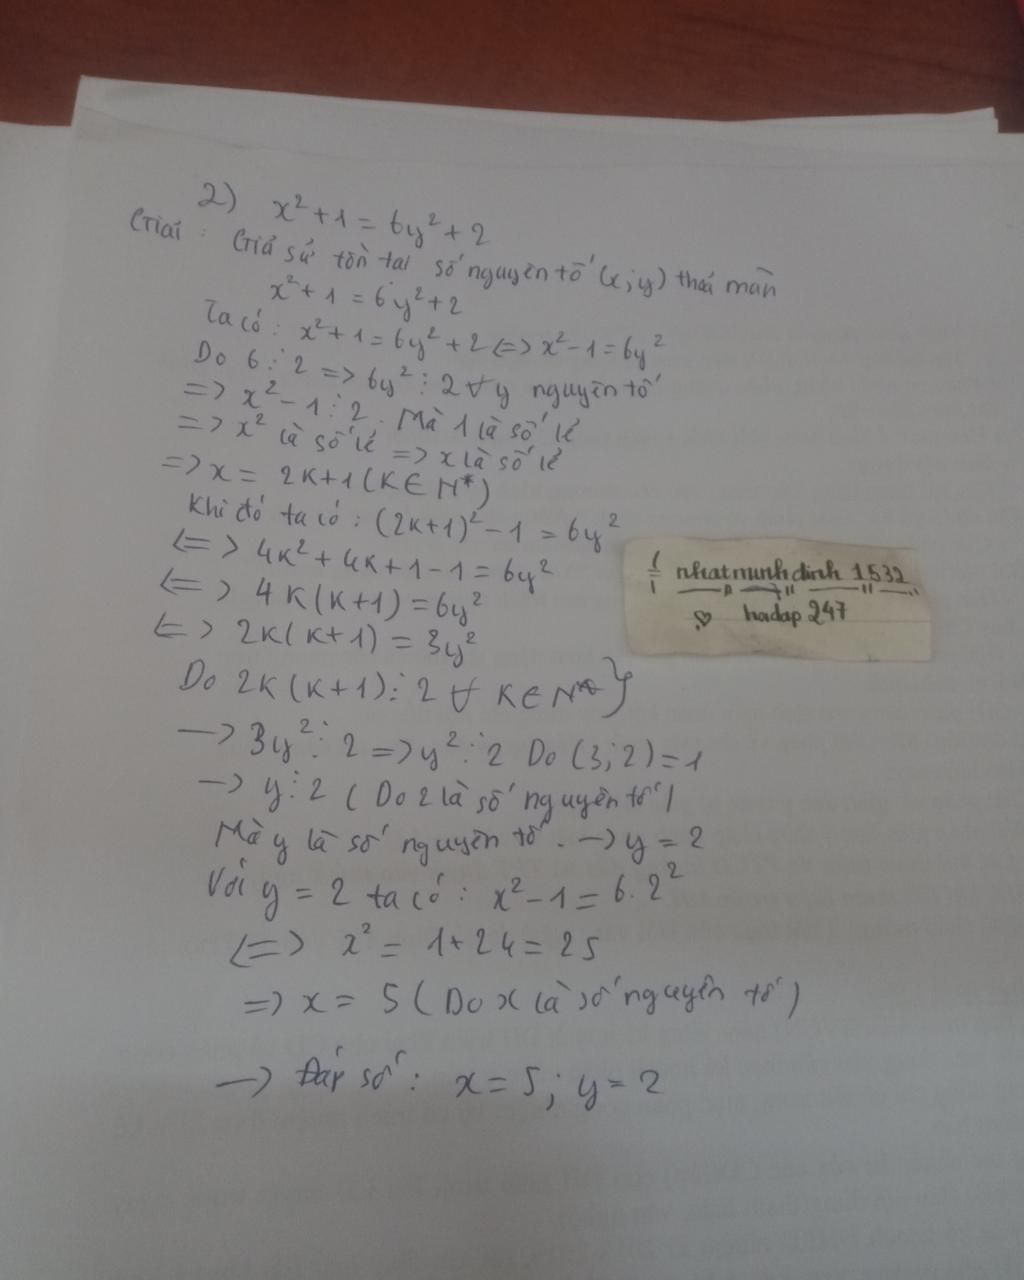 2) x² + 1 = 6y² + 2
Giải : Giả sử tồn tại số nguyên tố (x; y) thoả mãn
x² + 1 = 6y² + 2
Ta có : x² + 1 = 6y² + 2 <=> x² - 1 = 6y²
Do 6 ⋮ 2 => 6y² ⋮ 2 ∀ y nguyên tố
=> x² - 1 ⋮ 2. Mà 1 là số lẻ
=> x² là số lẻ => x là số lẻ
=> x = 2K+1 (K ∈ N*)
Khi đó ta có : (2K+1)² - 1 = 6y²
<=> 4K² + 4K + 1 - 1 = 6y²
<=> 4K(K+1) = 6y²
<=> 2K(K+1) = 3y²
Do 2K(K+1) ⋮ 2 ∀ K ∈ N* }
-> 3y² ⋮ 2 => y² ⋮ 2 Do (3; 2) = 1
-> y ⋮ 2 (Do 2 là số nguyên tố)
Mà y là số nguyên tố. -> y = 2
Với y = 2 ta có : x² - 1 = 6.2²
<=> x² = 1 + 24 = 25
=> x = 5 (Do x là số nguyên tố)
-> Đáp số : x = 5; y = 2
nhatminhdinh 1532
hoidap 247